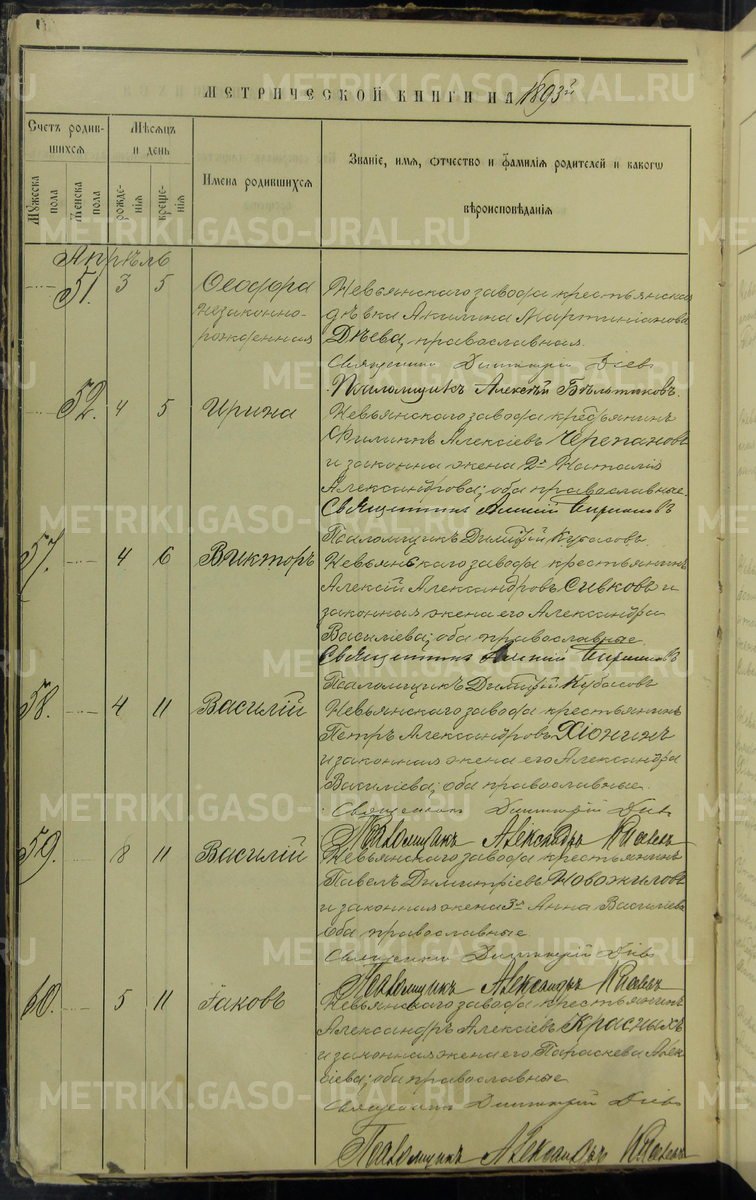 МЕТРИЧЕСКОЙ КНИГИ НА 1893й
Счетъ родившихся
Мѣсяцъ и день
Имена родившихся
Званіе, имя, отчество и фамилія родителей и какого
вѣроисповѣданія
Мужеска пола
Женска пола
рожденія
крещенія
Апрѣль
51. 3 5 Ѳеодора
незаконно-
рожденная
Невьянскаго завода крестьянская
дѣвка Акилина Мартиніанова
Дѣева, православная.
Священникъ Димитрій
Псаломщикъ Алексѣй Бѣльтиковъ.
52. 4 5 Ирина
Невьянскаго завода крестьянинъ
Филиппъ Алексіевъ Черепановъ
и законна жена 2я Наталія
Александрова; оба православные.
Священникъ
Псаломщикъ Димитрій Кубасовъ
57. 4 6 Викторъ
Невьянскаго завода крестьянинъ
Алексій Александровъ Сивковъ и
законная жена его Александра
Василіева; оба православные
Священникъ
Псаломщикъ Димитрій Кубасовъ
58. 4 11 Василій
Невьянскаго завода крестьянинъ
Петръ Александровъ Хіонинъ
и законная жена его Александра
Василіева; оба православные.
Священникъ Димитрій
Псаломщикъ Александръ
59. 8 11 Василій
Невьянскаго завода крестьянинъ
Павелъ Димитріевъ Новожиловъ
и законная жена 3я Анна Василіева
Оба православные
Священникъ Димитрій
Псаломщикъ Александръ
60. 5 11 Іаковъ
Невьянскаго завода крестьянинъ
Александръ Алексіевъ Красныхъ
и законная жена его Параскева Алек
сіева; оба православные
Священникъ Димитрій
Псаломщикъ Александръ
METRIKI.GASO-URAL.RU